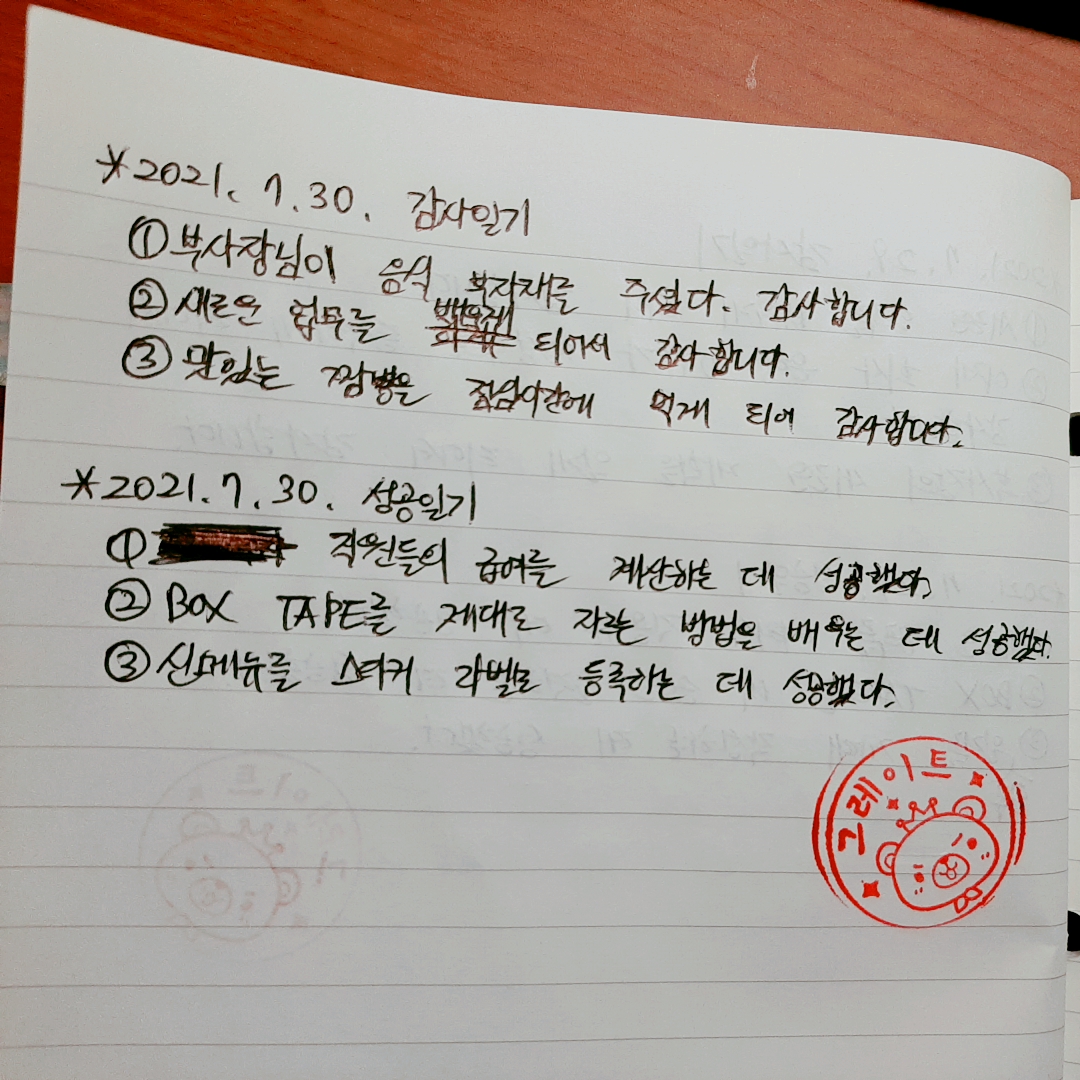 *2021. 7. 30. 감사일기
①부사장님이 음식 부자재를 주셨다. 감사합니다.
②새로운 업무를 배우게 되어서 감사합니다.
③맛있는 짬뽕을 점심시간에 먹게 되어 감사합니다.
*2021. 7. 30. 성공일기
① 직원들의 급여를 계산하는 데 성공했다.
②BOX TAPE를 제대로 자르는 방법을 배우는 데 성공했다.
③신메뉴를 스티커 라벨로 등록하는 데 성공했다.
그레이트